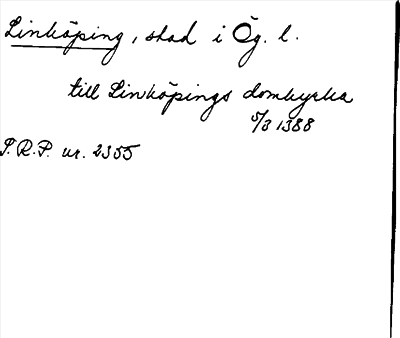 Linköping, stad i Ög. l.
till Linköpings domkyrka
5/3 1388
P.R.P. nr. 2355